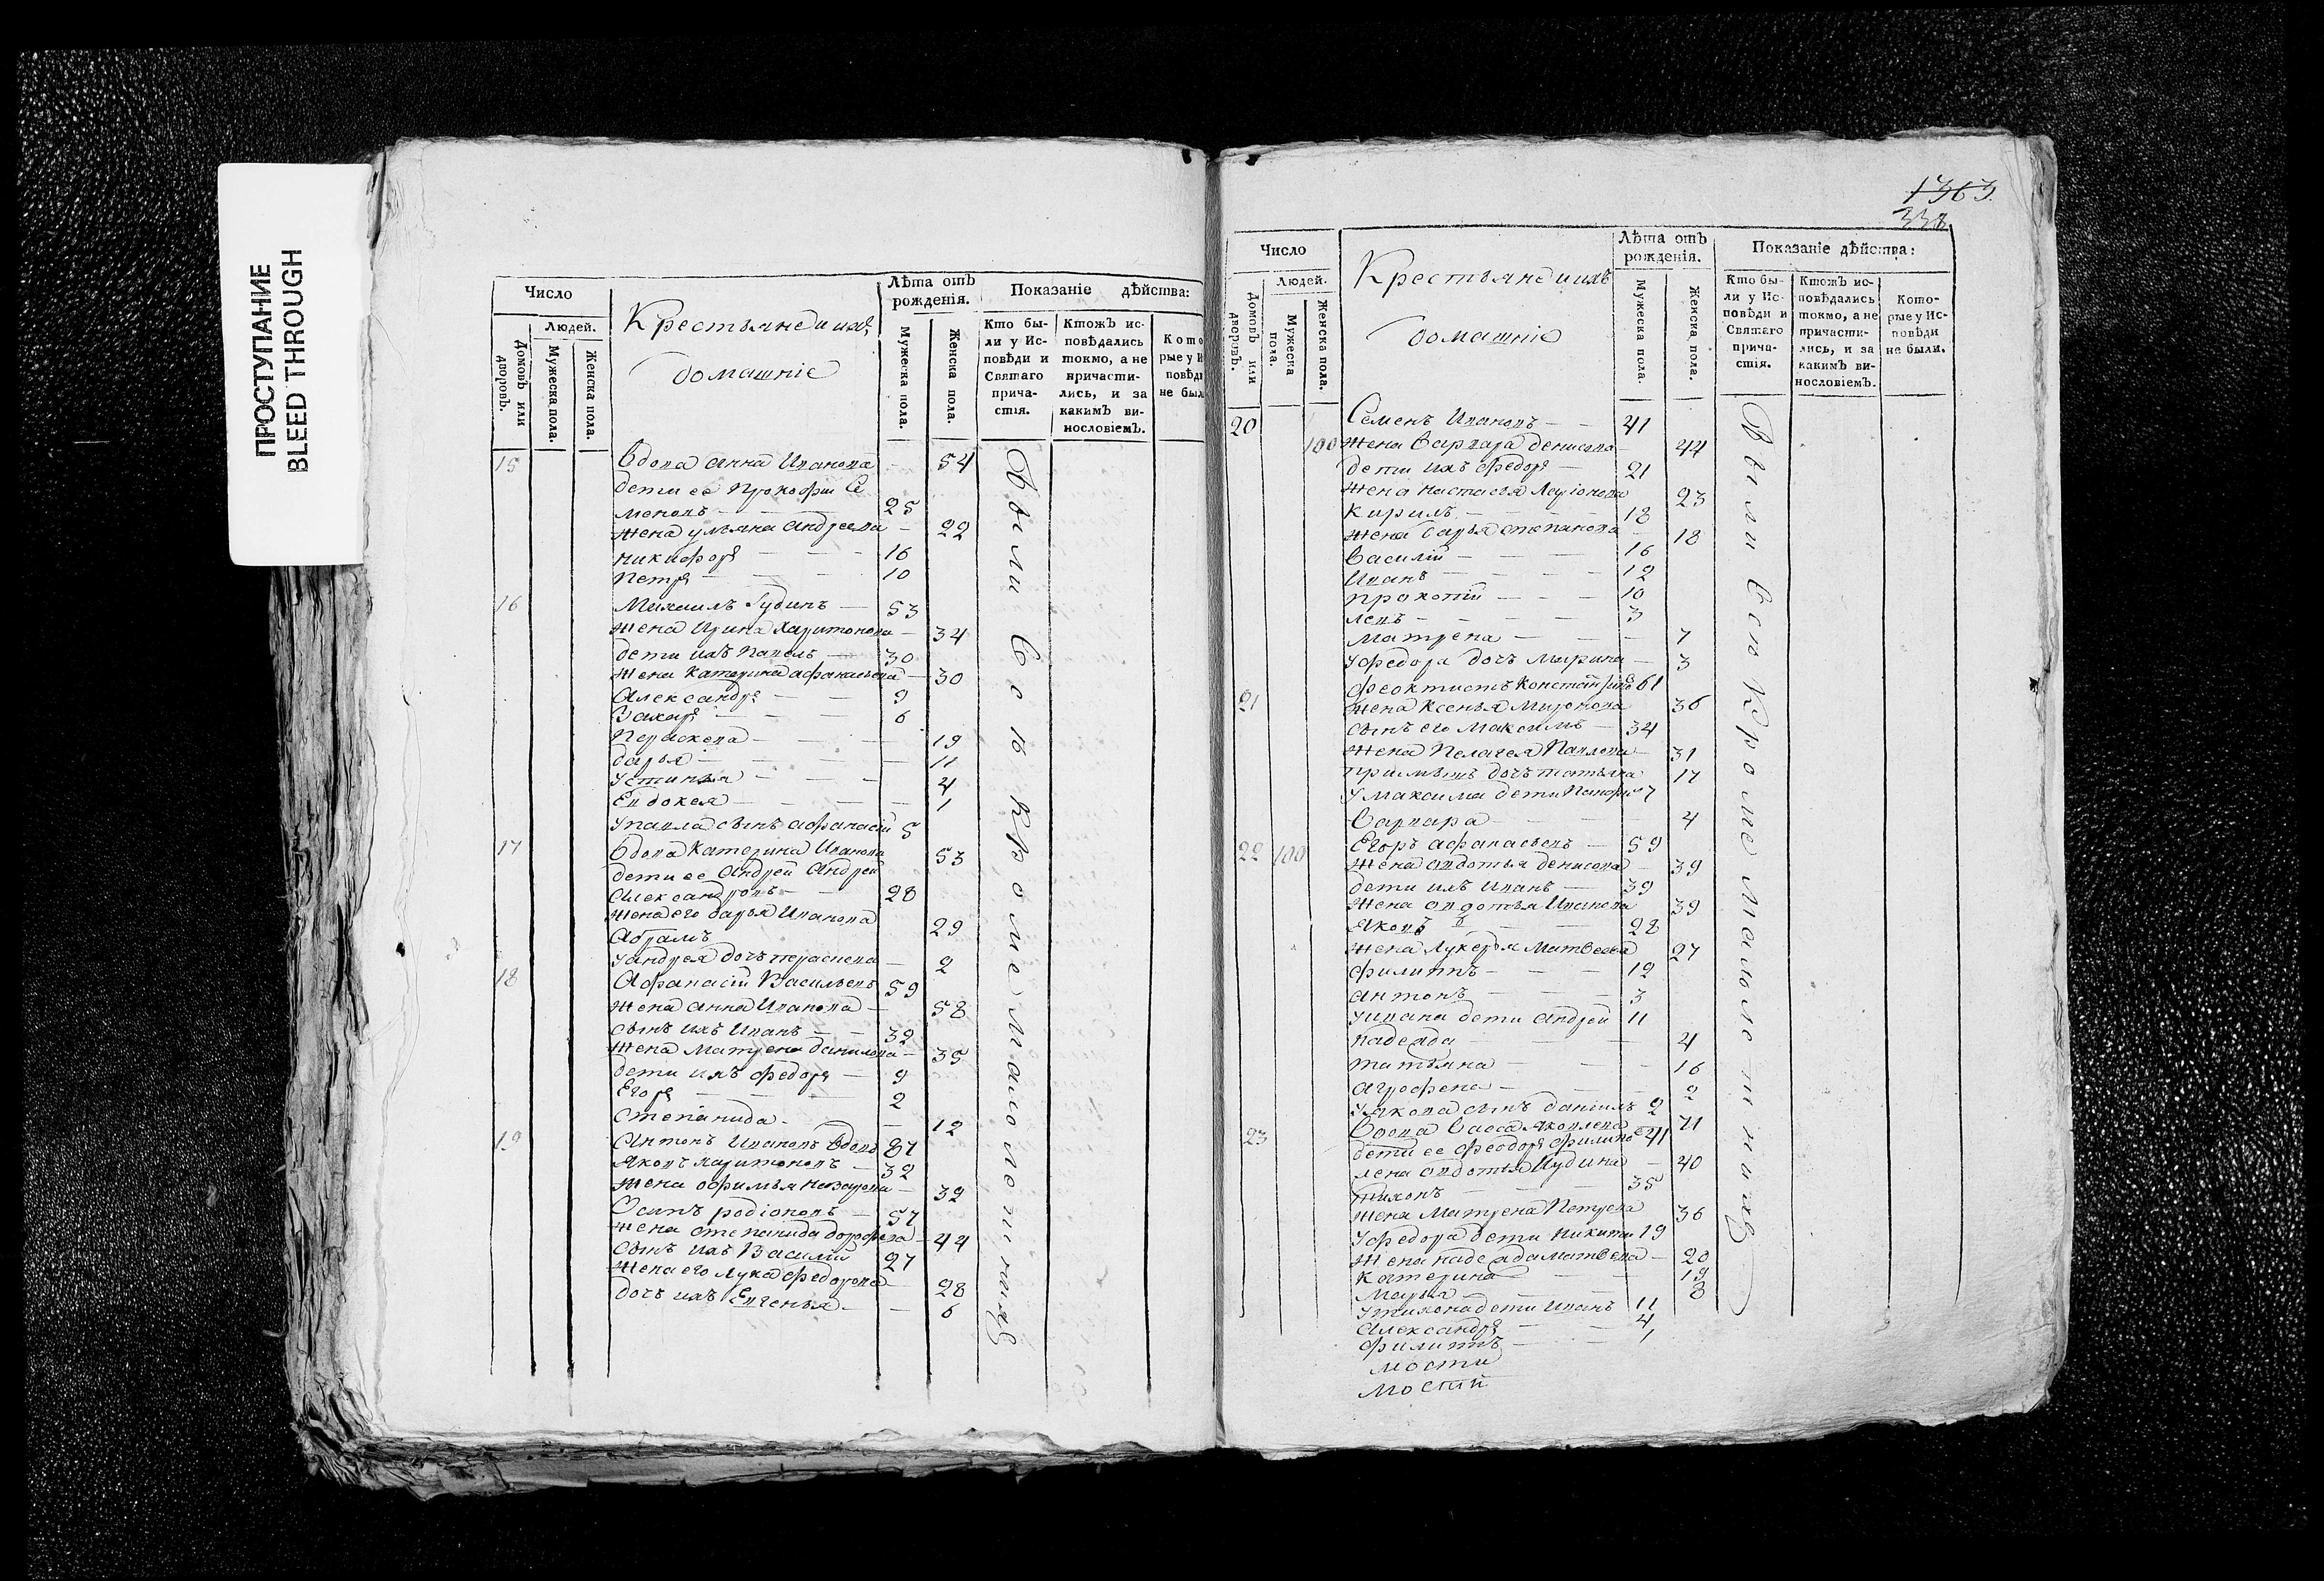 ПРОСТУПАНИЕ
BLEED THROUGH
Число
Людей.
Домовъ или дворовъ.
Мужеска пола.
Женска пола.
Крестьяне и ихъ
домашніе
Лѣта отъ рожденія.
Мужеска пола.
Женска пола.
Показаніе дѣйства:
Кто бы-
ли у Ис-
повѣди и
Святаго
прича-
стія.
Ктожъ ис-
повѣдались
токмо, а не
причасти-
лись, и за
какимъ ви-
нословіемъ.
Кото
рые у И
повѣди
не был
15 Вдова Анна Иванова — 54
дети ее Прокофий Се
меновъ — 25
жена ульяна Андреева — 22
никифоръ — 16
Петръ — 10
16 Михаилъ Гудинъ — 53
жена Ирина Харитонова — 34
дети ихъ Павелъ — 30
жена Катерина афанасьева — 30
Александръ — 9
Захаръ — 6
Пераскева — 19
дарья — 11
Устинья — 4
Евдокея — 1
У павла сынъ афанасій 5
17 Вдова Катерина Иванова 53
дети ее Андрей Андрей
Александровъ — 28
жена его дарья Иванова 29
Абрамъ
У андрея дочь пераскева — 2
18 Афанасій Васильевъ 59
жена анна Иванова — 58
сынъ ихъ Иванъ — 32
жена Матрена данилова — 35
дети ихъ федоръ — 9
Егоръ — 2
Степанида — 12
19 Антонъ Ивановъ вдовъ 87
Яковъ харитоновъ — 32
жена офимья Назарова — 32
Осипъ родіоновъ — 57
жена степанида дорофеева — 44
сынъ ихъ Василій 27
жена его лукя федорова 28
дочь ихъ Евгенья — 6
Были Вси Кроме малолетнихъ
1363
338
Число
Людей.
Домовъ или дворовъ.
Мужеска пола.
Женска пола.
Крестьяне и ихъ
домашніе
Лѣта отъ рожденія.
Мужеска пола.
Женска пола.
Показаніе дѣйства:
Кто бы-
ли у Ис-
повѣди и
Святаго
прича-
стія.
Ктожъ ис-
повѣдались
токмо, а не
причасти-
лись, и за
какимъ ви-
нословіемъ.
Кото-
рые у Ис-
повѣди
не были.
20 Семенъ Ивановъ — 41
100 жена варвара денисова 44
дети ихъ федоръ — 21
жена настасья 23
Кирилъ — 18
жена дарья степанова 18
Василій — 16
Иванъ — 12
прокопій — 10
левъ — 3
матрена — 7
У федора дочь Марина — 3
21 феоктистъ Константиновъ 61
жена Ксенья Миронова 36
сынъ его Максимъ — 34
жена Пелагея Павлова — 31
дочь татьяна 17
У максима дети 7
варвара — 4
22 100 Егоръ афанасьевъ — 59
жена авдотья денисова 39
дети ихъ Иванъ — 39
жена авдотья Иванова 39
Яковъ — 28
жена Лукерья Матвеева 27
филиппъ — 12
антонъ — 3
У ивана дети андрей 11
надежда — 4
татьяна — 16
агрофена — 2
У Якова сынъ данилъ 2
23 Вдова Васса Яковлева 71
дети ее феодоръ филиповъ 41
жена авдотья Иудина — 40
тихонъ — 35
жена Матрена Петрова 36
У федора дети никита 19
жена надежда матвеева — 20
Катерина — 19
Марья — 8
У тихона дети Иванъ 11
Александръ — 4
филиппъ — 1
мости
мостій
Были Вси Кроме малолетнихъ